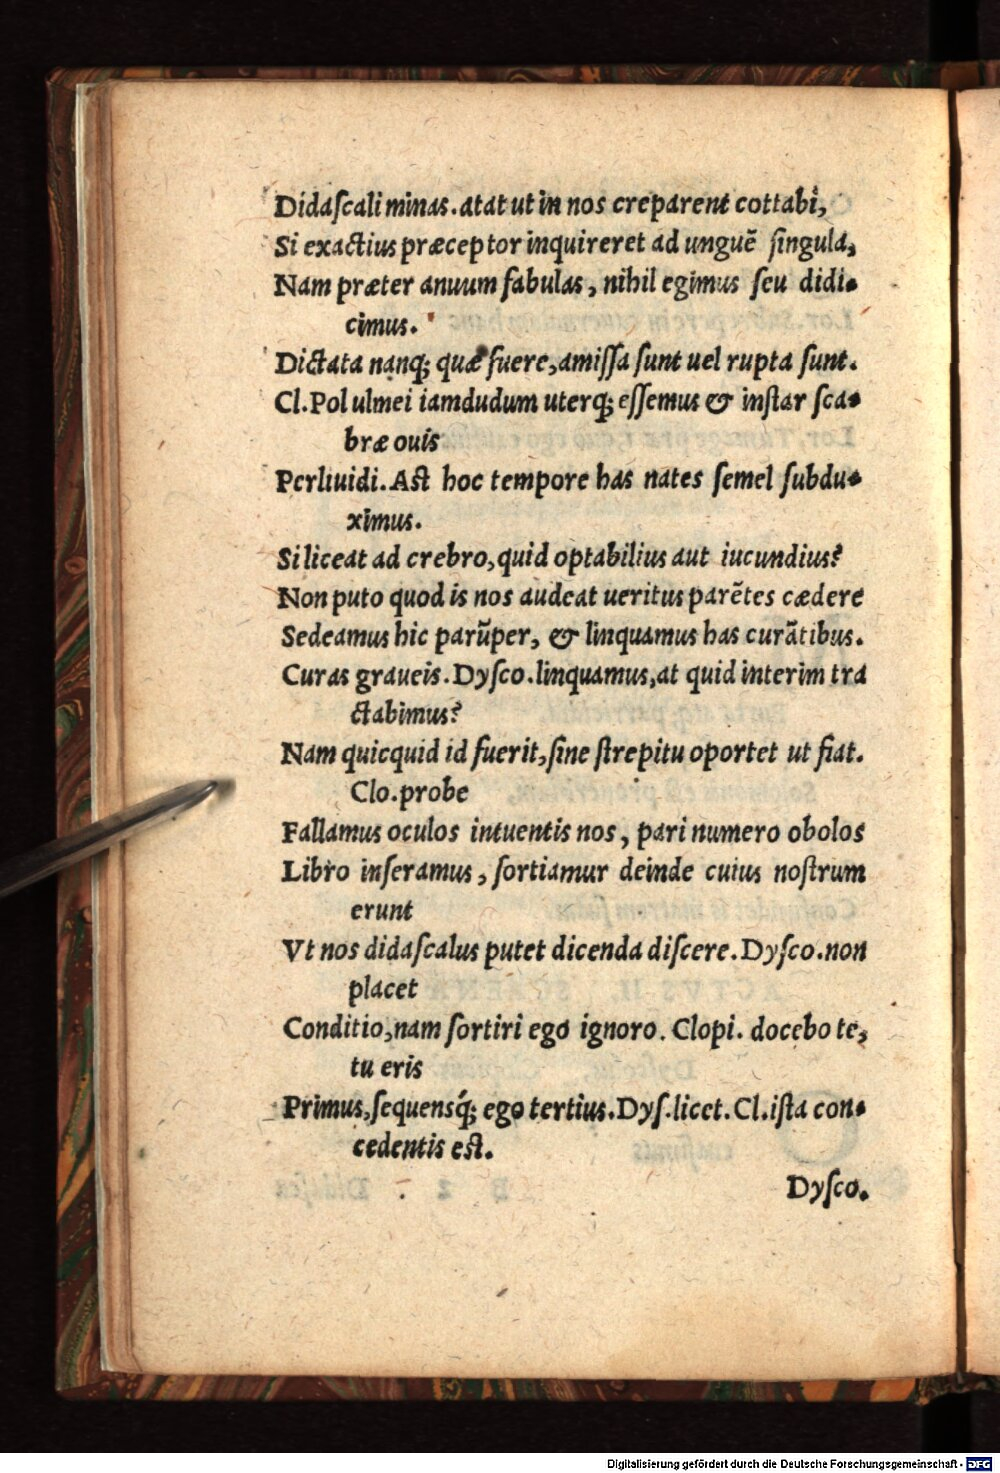 Didaſcali minas. atat ut in nos creparent cottabi,
Si exactius præceptor inquireret ad unguē ſingula,
Nam præter anuum fabulas, nihil egimus ſeu didi-
cimus.
Dictata nanq; quæ fuere, amiſſa ſunt uel rupta ſunt.
Cl. Pol ulmei iamdudum uterq; eſſemus & inſtar ſca-
bræ ouis
Perliuidi. Aſt hoc tempore has nates ſemel ſubdu-
ximus.
Si liceat ad crebro, quid optabilius aut iucundius?
Non puto quod is nos audeat ueritus parētes cædere
Sedeamus hic parūper, & linquamus has curātibus.
Curas graueis. Dyſco. linquamus, at quid interim tra
ctabimus?
Nam quicquid id fuerit, ſine ſtrepitu oportet ut fiat.
Clo. probe
Fallamus oculos intuentis nos, pari numero obolos
Libro inſeramus, ſortiamur deinde cuius noſtrum
erunt
Vt nos didaſcalus putet dicenda diſcere. Dyſco. non
placet
Conditio, nam ſortiri ego ignoro. Clopi. docebo te,
tu eris
Primus, ſequensq́; ego tertius. Dyſ. licet. Cl. iſta con-
cedentis eſt.
Dyſco.
Digitalisierung gefördert durch die Deutsche Forschungsgemeinschaft - DFG